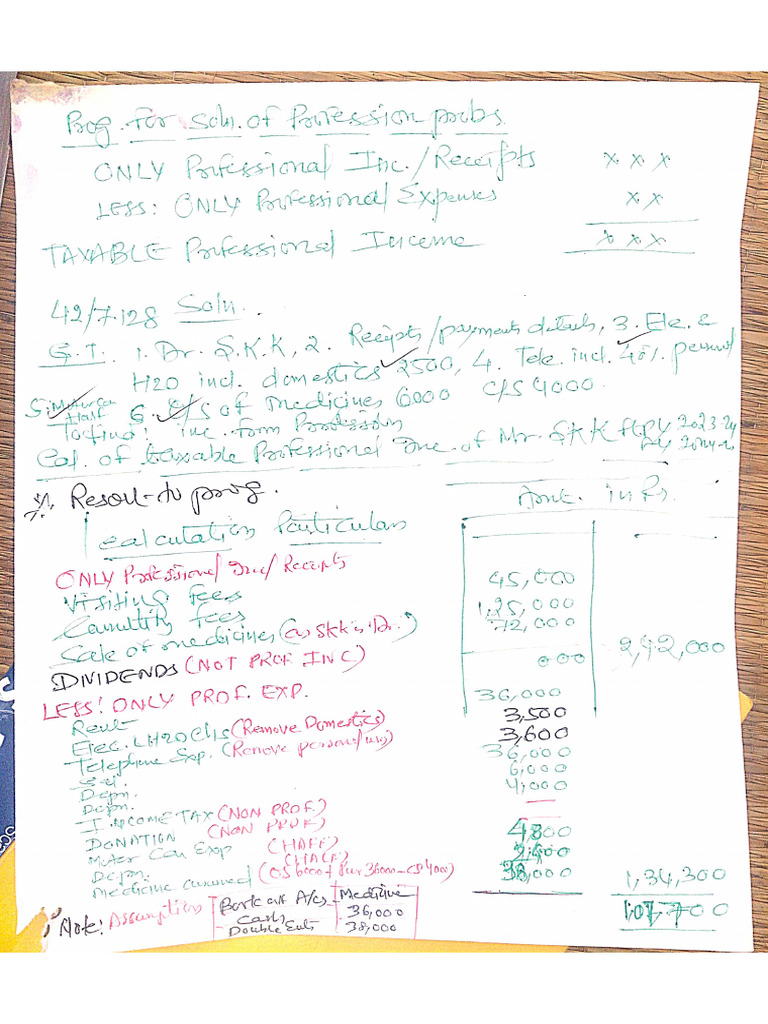 Prog. For Soln. of Profession probs.
ONLY Professional Inc./Receipts x x x
LESS: ONLY Professional Expenses x x
TAXABLE Professional Income x x x
42/7.128 Soln.
G.T. 1. Dr. S.K.K, 2. Receipts/payments details, 3. Ele. &
H2O incl. domestics 2500, 4. Tele. incl. 40% personal
5. Half 6. O/S of medicines 6000 C/S 4000.
To find: inc. form Profession
Cal. of taxable Professional Inc. of Mr. SKK PY 2023-24
Resort to prog. Amt. in Rs.
Calculation Particulars
ONLY Professional Inc/Receipts
Visiting Fees 45,000
Consulting fees 1,25,000
Sale of medicines (as SKK is Dr.) 72,000 2,42,000
DIVIDENDS (NOT PROF INC) 000
LESS: ONLY PROF. EXP.
Rent 36,000
Elec. & H2O Chs (Remove Domestics) 3,500
Telephone Exp. (Remove personal use) 3,600
36,000
Depn. 6,000
Depn. 4,000
INCOME TAX (NON PROF.) —
DONATION (NON PROF.)
Motor Car Exp (HALF) 4800
Depn. (HALF) 2400
Medicine consumed (OS 6000 + Pur 36000 - CS 4000) 38,000 1,34,300
107,700
Note: Assumption Book out A/cs Medicine
Cash 36,000
Double Ent. 38,000